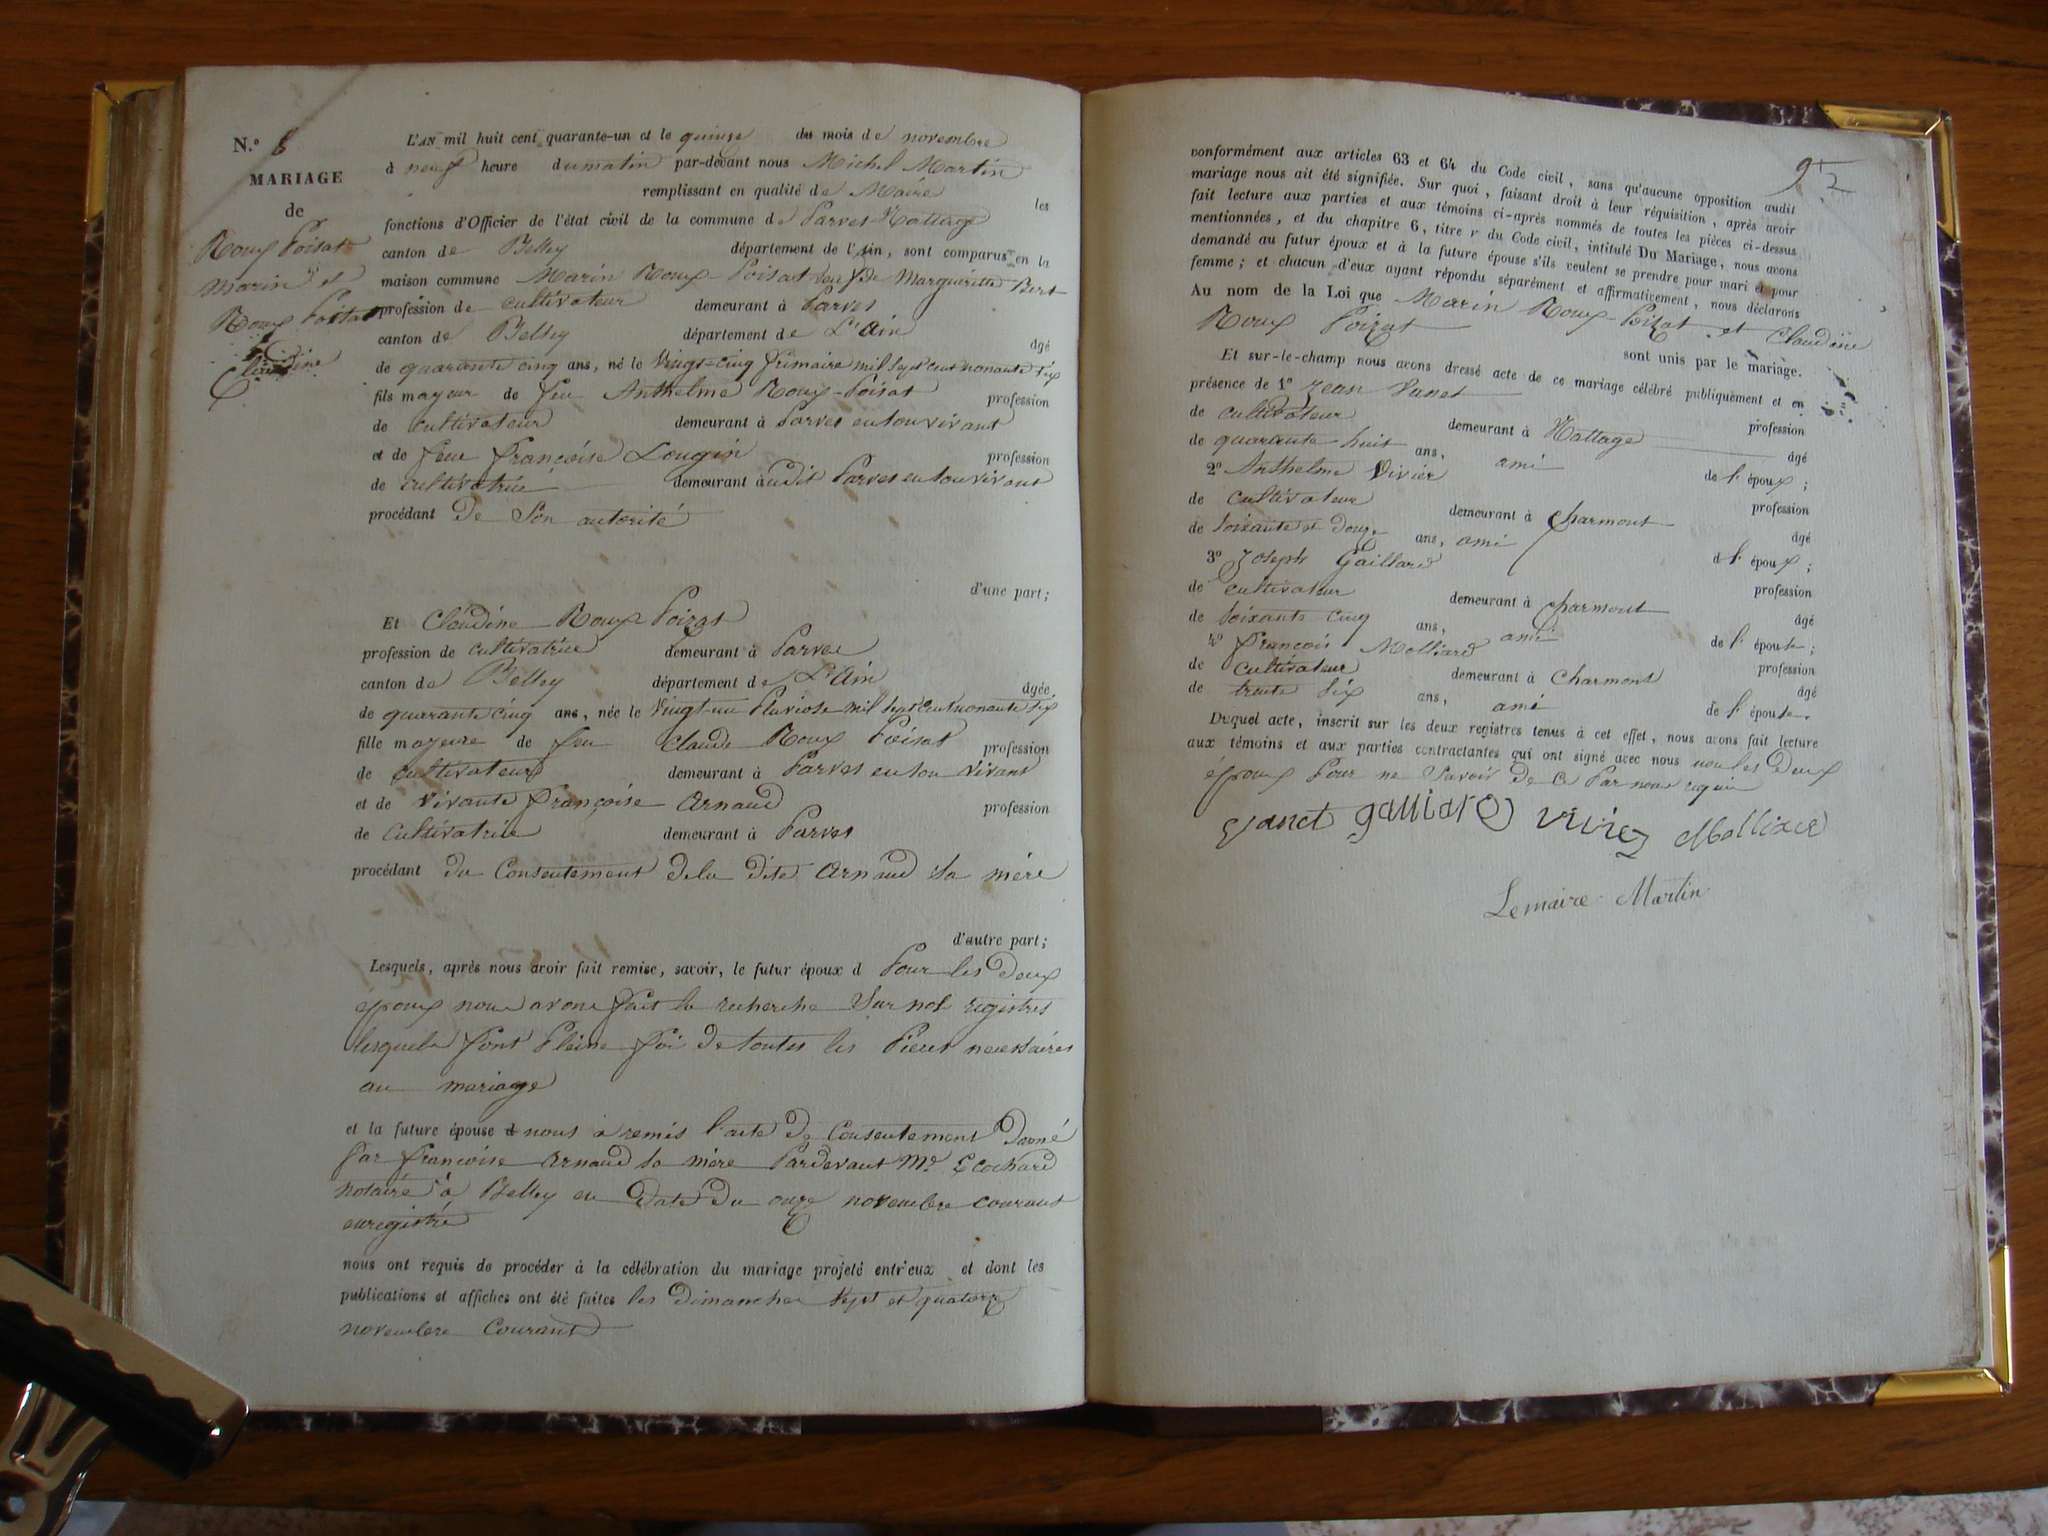 N.º 8
MARIAGE
de
Roux Poisat
marin et
Roux Poisat
Claudine
L'AN mil huit cent quarante-un et le quinze du mois de novembre
à neuf heure du matin par-devant nous Michel Martin
remplissant en qualité de Maire les
fonctions d'Officier de l'état civil de la commune de Parves Nattage
canton de Belley département de l'Ain, sont comparus en la
maison commune Marin Roux-Poisat veuf de Margueritte Bert
profession de cultivateur demeurant à Parves
canton de Belley département de L'Ain âgé
de quarante cinq ans, né le vingt-cinq frimaire mil sept cent nonante six
fils mayeur de feu Anthelme Roux-Poisat profession
de cultivateur demeurant à Parves en son vivant
et de feue françoise Lougin profession
de cultivatrice demeurant audit Parves en son vivant
procédant de son autorité
d'une part;
Et Claudine Roux Poizat
profession de cultivatrice demeurant à Parves
canton de Belley département de L'Ain âgée
de quarante cinq ans, née le vingt-un Pluviose mil sept cent nonante six
fille mayeure de feu Claude Roux Poisat profession
de cultivateur demeurant à Parves en son vivant
et de vivante françoise Arnaud profession
de cultivatrice demeurant à Parves
procédant du Consentement de la dite Arnaud sa mère
d'autre part;
Lesquels, après nous avoir fait remise, savoir, le futur époux d Pour les deux
époux nous avons fait la recherche sur nos registres
lesquels font Pleine foi de toutes les Pièces necessaires
au mariage
et la future épouse d nous a remis l'acte de Consentement donné
par françoise Arnaud sa mère Pardevant Me Ecochard
notaire à Belley en date du onze novembre courant
enregistré
nous ont requis de procéder à la célébration du mariage projeté entr'eux et dont les
publications et affiches ont été faites les dimanches sept et quatorze
novembre courant
conformément aux articles 63 et 64 du Code civil, sans qu'aucune opposition audit
mariage nous ait été signifiée. Sur quoi, faisant droit à leur réquisition, après avoir
fait lecture aux parties et aux témoins ci-après nommés de toutes les pièces ci-dessus
mentionnées, et du chapitre 6, titre v du Code civil, intitulé DU MARIAGE, nous avons
demandé au futur époux et à la future épouse s'ils veulent se prendre pour mari et pour
femme; et chacun d'eux ayant répondu séparément et affirmativement, nous déclarons
Au nom de la Loi que Marin Roux-Poizat et Claudine
Roux Poizat
sont unis par le mariage.
Et sur-le-champ nous avons dressé acte de ce mariage célébré publiquement et en
présence de 1º Jean Vanet profession
de cultivateur demeurant à Nattage âgé
de quarante huit ans, ami de l'époux;
2º Anthelme Vivier profession
de cultivateur demeurant à Charmont âgé
de soixante et douze ans, ami d l'époux;
3º Joseph Gaillard profession
de cultivateur demeurant à Charmont âgé
de soixante cinq ans, ami de l'épouse;
4º François Molliard profession
de cultivateur demeurant à Charmont âgé
de trente six ans, ami de l'épouse.
Duquel acte, inscrit sur les deux registres tenus à cet effet, nous avons fait lecture
aux témoins et aux parties contractantes qui ont signé avec nous non les deux
époux Pour ne savoir de ce Par nous requis
galliard vivier Molliard
Lemaire Martin